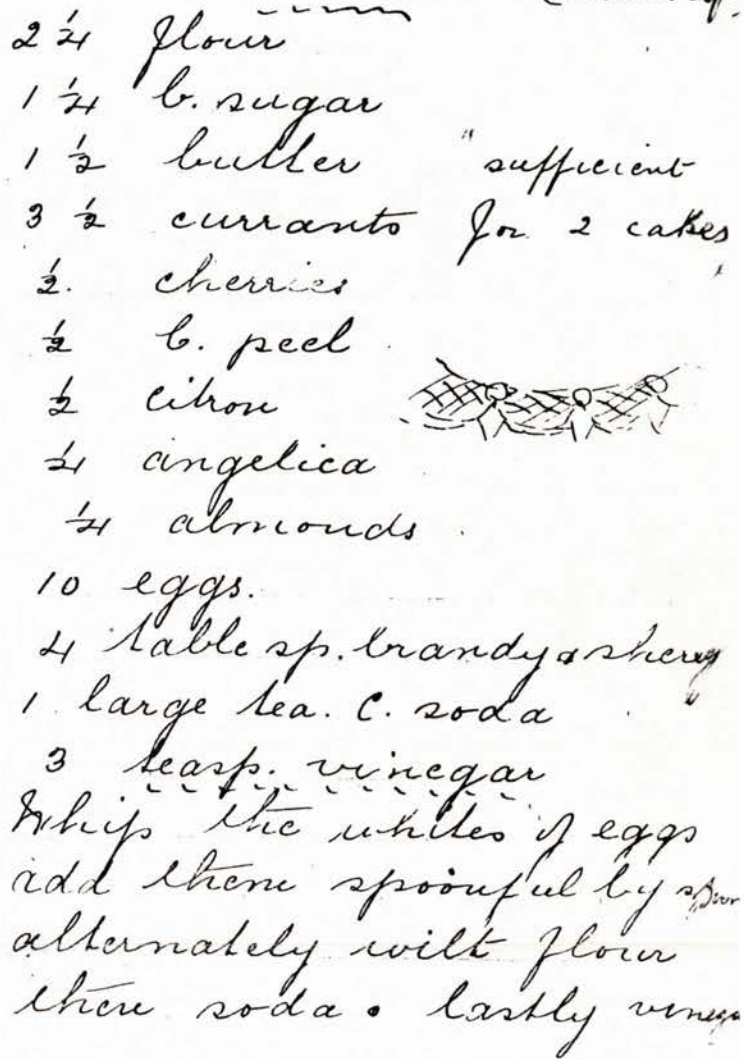 2 1/4 flour
1 1/4 b. sugar
1 1/2 butter "sufficient
3 1/2 currants for 2 cakes
1/2. cherries
1/2 b. peel
1/2 citron
1/4 angelica
1/4 almonds
10 eggs.
4 table sp. brandy or sherry
1 large tea. C. soda
3 teasp. vinegar
Whip the whites of eggs
add them spoonful by
alternately with flour
then soda. lastly vinegar